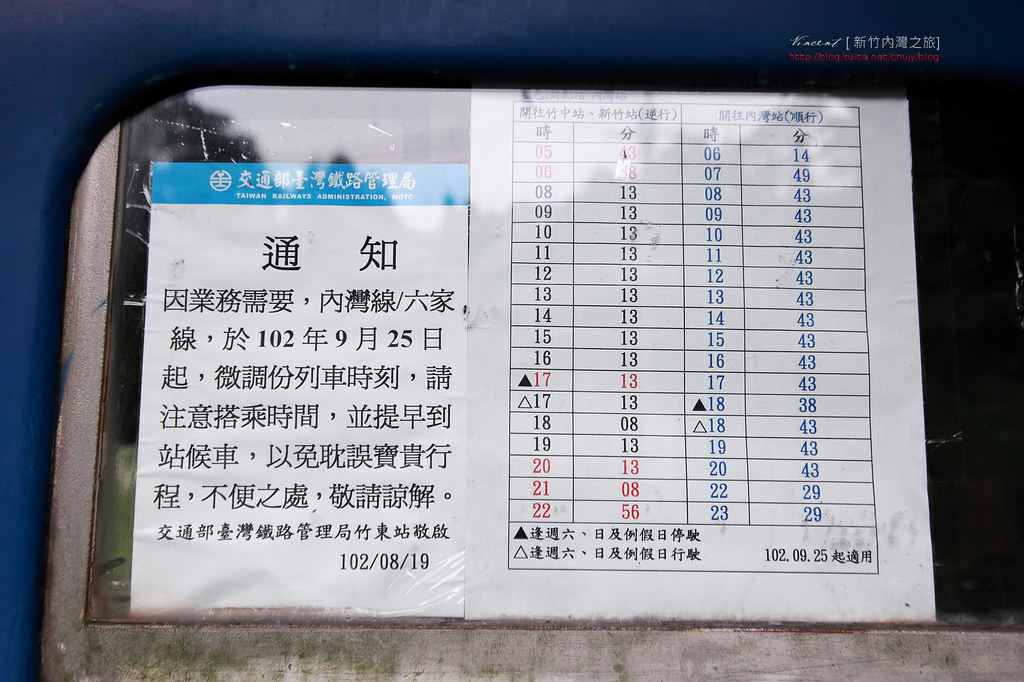 Vincent [ 新竹內灣之旅]
http://blog.xuite.net/chujy/blog
交通部臺灣鐵路管理局
TAIWAN RAILWAYS ADMINISTRATION, MOTC
通 知
因業務需要，內灣線/六家
線，於 102 年 9 月 25 日
起，微調份列車時刻，請
注意搭乘時間，並提早到
站候車，以免耽誤寶貴行
程，不便之處，敬請諒解。
交通部臺灣鐵路管理局竹東站敬啟
102/08/19
開往竹中站、新竹站(逆行) 開往內灣站(順行)
時 分 時 分
05 43 06 14
06 38 07 49
08 13 08 43
09 13 09 43
10 13 10 43
11 13 11 43
12 13 12 43
13 13 13 43
14 13 14 43
15 13 15 43
16 13 16 43
▲17 13 17 43
△17 13 ▲18 38
18 08 △18 43
19 13 19 43
20 13 20 43
21 08 22 29
22 56 23 29
▲逢週六、日及例假日停駛
△逢週六、日及例假日行駛 102.09.25 起適用